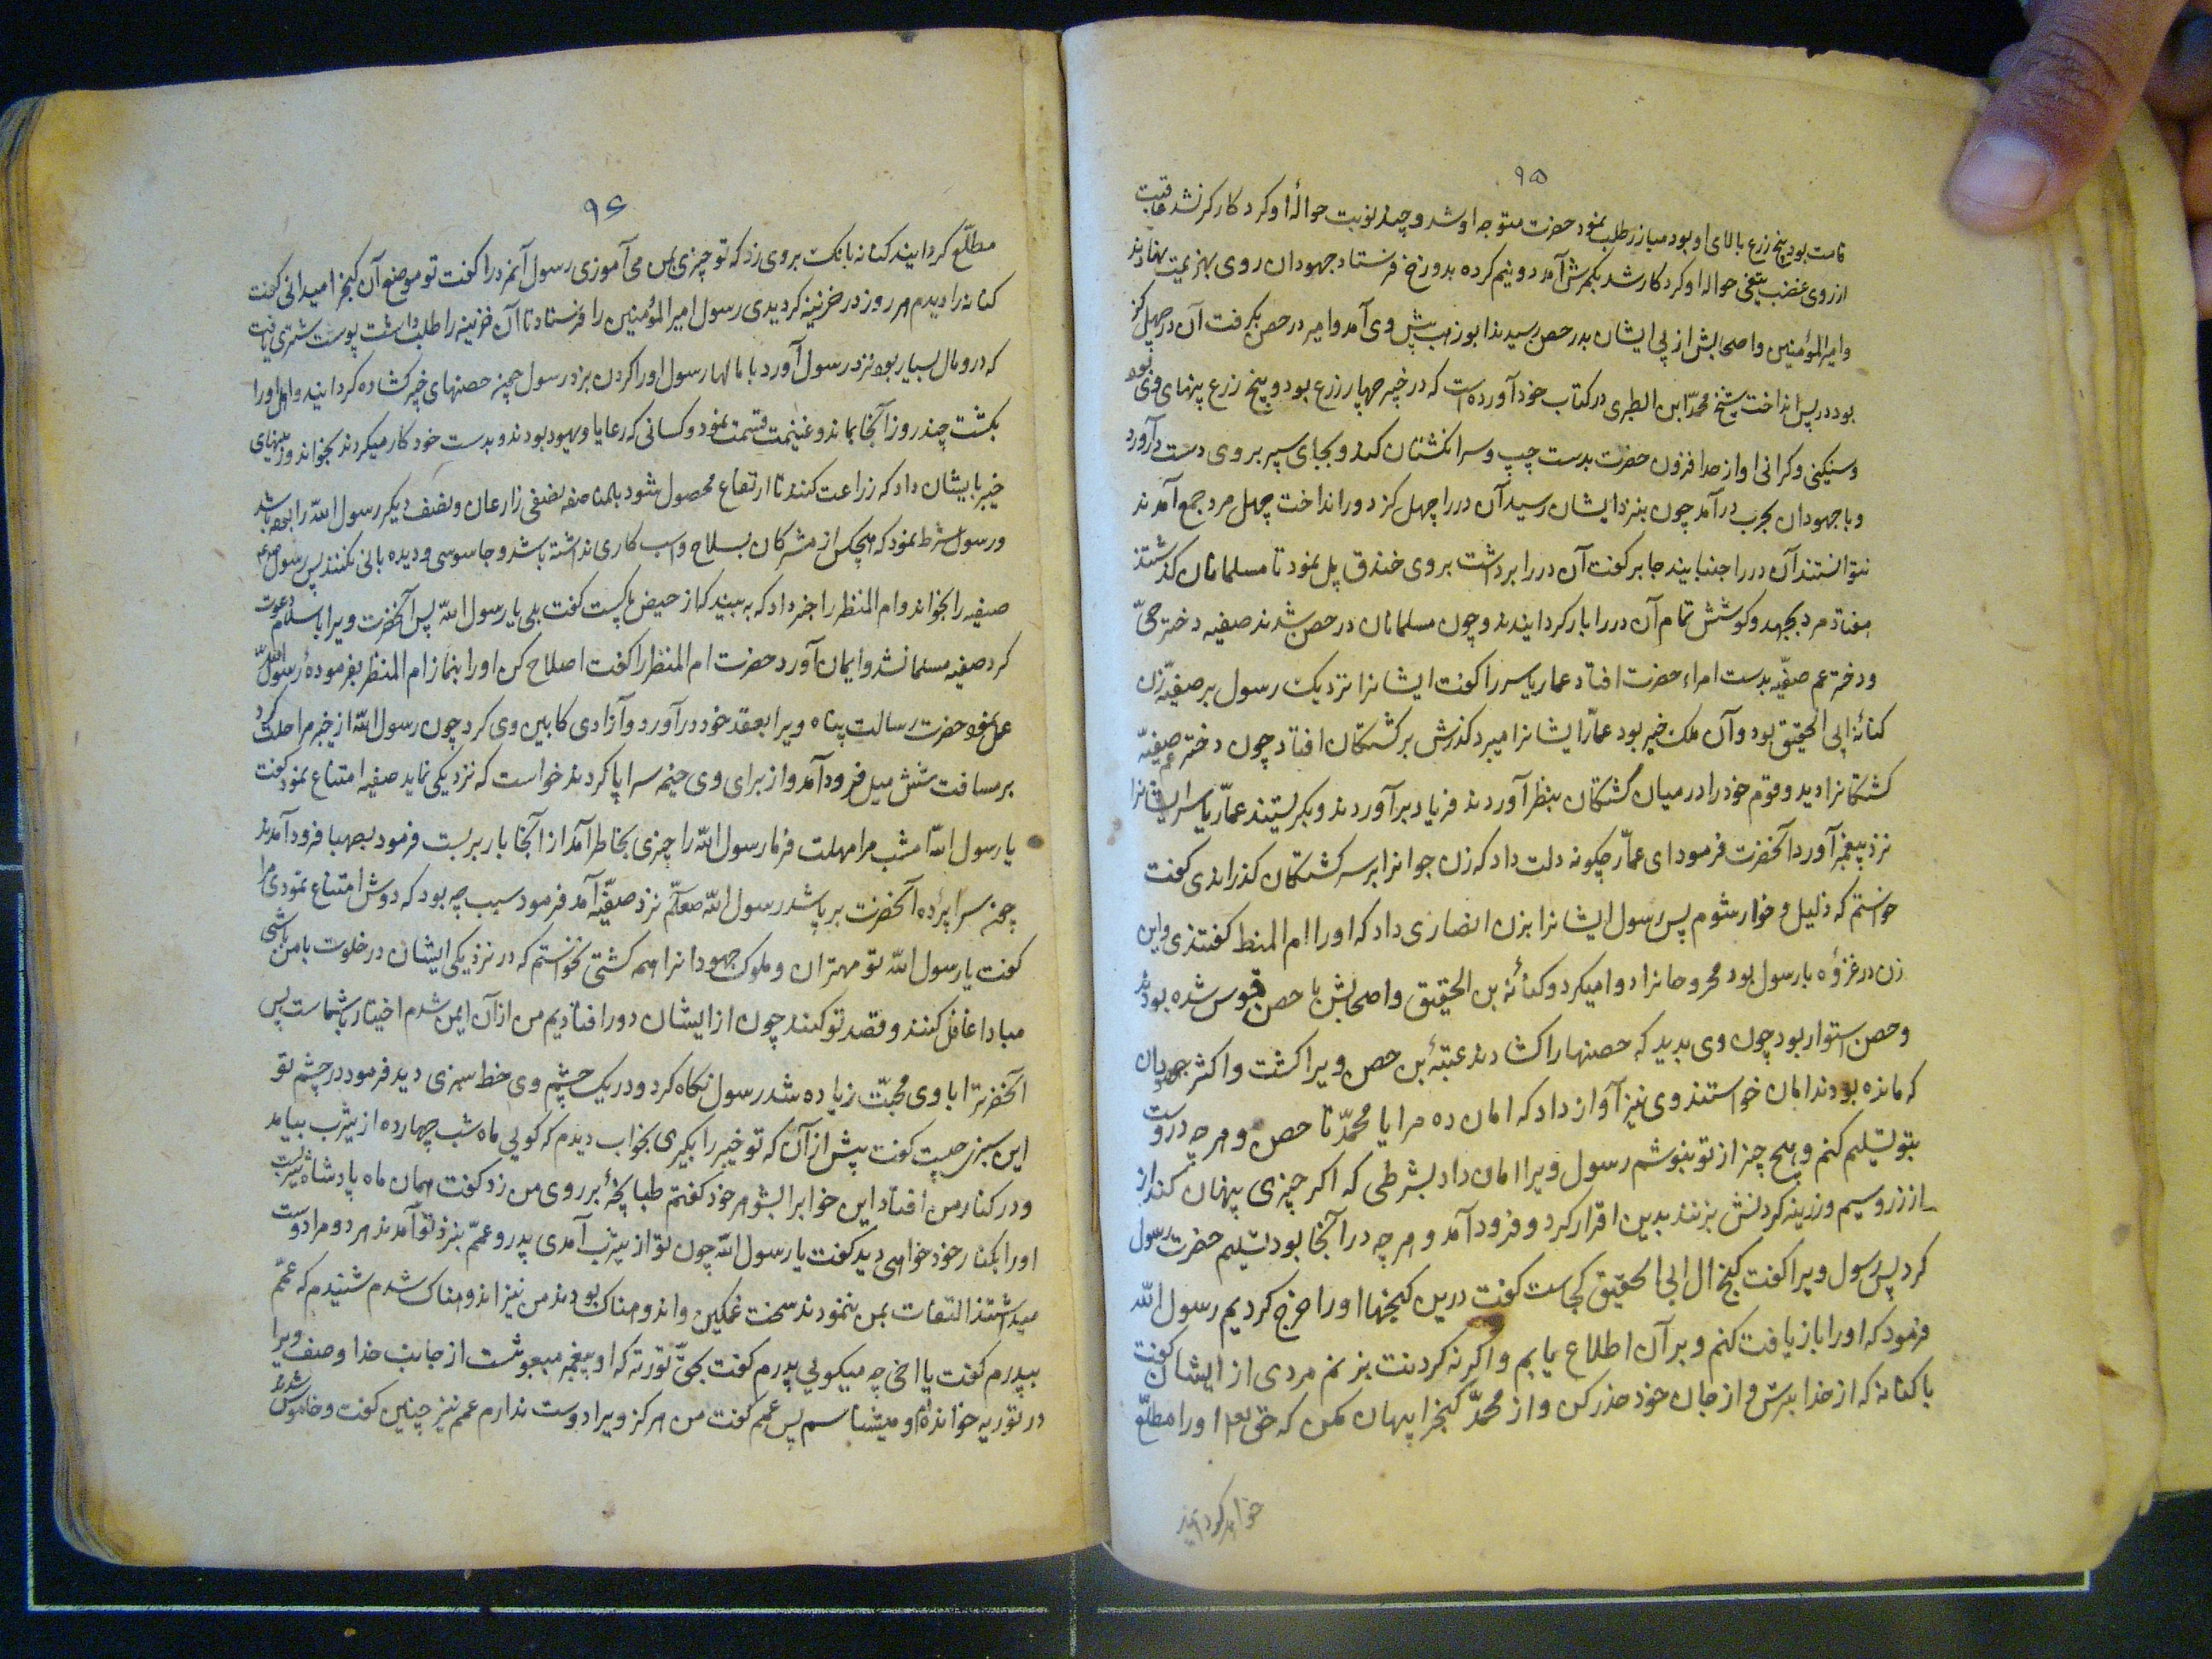 ۹۵
قامت بود پنج زرع بالای او بود مبارز طلب نمود حضرت متوجه او شد و چند نوبت حوالهٔ او کرد کارکر نشد عاقبت
از روی غضب تیغی حواله او کرد کار شد بکمرش آمد دو نیم کرده بدوزخ فرستاد جهودان روی بهزیمت نهادند
و امیر المؤمنین و اصحابش از پی ایشان بدر حصن رسیدند ابوزهب پیش وی آمد و امیر در حصن بکرفت آن در چهل کز
بود در پس انداخت شیخ محمد ابن الطبری در کتاب خود آورده است که در خیبر چهار زرع بود و پنج زرع پهنای وی بود
و سنکینی و کرانی او از صد افزون حضرت بدست چپ و سر انکشتان کند و بجای سپر بر وی دست درآورد
و با جهودان بحرب درآمد چون بنزد ایشان رسید آن در را چهل کز دور انداخت چهل مرد جمع آمدند
نتوانستند آن در را جنبانیدن جابر کفت آن در را برداشت بر روی خندق پل نمود تا مسلمانان کذشتند
هفتاد مرد بجهد و کوشش تمام آن در را بار کردانیدند و چون مسلمانان در حصن شدند صفیه دختر حیّ
و دختر عم صفیّه بدست امراء حضرت افتاد عمار یاسر را کفت ایشانرا نزدیک رسول بر صفیّه زن
کنانهٔ ابی الحقیق بود و آن ملک خیبر بود عمّار ایشانرا میبرد کذرش بر کشتکان افتاد چون دختر عم صفیّه
کشتکانرا دید و قوم خود را در میان کشتکان بنظر آوردند فریاد برآوردند و بکریستند عمّار یاسر ایشانرا
نزد پیغمبر آورد آنحضرت فرمود ای عمّار چکونه دلت داد که زن جوانرا بر سر کشتکان کذراندی کفت
خواستم که ذلیل و خوار شوم پس رسول ایشانرا بزن انصاری داد که او را ام المنظر کفتندی و این
زن در غزوه با رسول بود مجروحانرا دوا میکرد و کنانهٔ بن الحقیق و اصحابش با حصن قموس شده بودند
و حصن استوار بود چون وی بدید که حصنها را کشادند عتبهٔ بن حصن ویرا کشت و اکثر جهودان
که مانده بودند امان خواستند وی نیز آواز داد که امان ده مرا یا محمّد تا حصن و هر چه دروست
بتو تسلیم کنم و هیچ چیز از تو نپوشم رسول ویرا امان داد بشرطی که اکر چیزی پنهان کند از
از زر و سیم وزینه کردنش بزنند بدین اقرار کرد و فرود آمد و هر چه در آنجا بود تسلیم حضرت رسول
کرد پس رسول ویرا کفت کنج ال ابی الحقیق کجاست کفت درین کنجها او را خرج کردیم رسول الله
فرمود که او را باز یافت کنم و بر آن اطلاع یابم و اکر نه کردنت بزنم مردی از ایشان کفت
با کنانه که از خدا بترس و از جان خود حذر کن و از محمّد کنج را پنهان مکن که حق تعالی او را مطلّع
خواهد کردانید
۹۶
مطلّع کردانید کنانه بانک بر وی زد که تو چیزی بمن می آموزی رسول آنمرد را کفت تو موضع آن کنج را میدانی کفت
کنانه را دیدم هر روز در خزینه کردیدی رسول امیر المؤمنین را فرستاد تا آن خزینه را طلب داشت پوست شتری یافت
که درو مال بسیار بود نزد رسول آورد با مالها رسول او را کردن بزد رسول چون حصنهای خیبر کشاده کردانید و اهل او را
بکشت چند روز آنجا بماند و غنیمت قسمت نمود و کسانی که رعایا و یهود بودند و بدست خود کار میکردند بخواند و زمینهای
خیبر بایشان داد که زراعت کنند تا ارتفاع محصول شود بالمناصفه نصفی زارعان و نصف دیکر رسول الله را بوده باشد
و رسول شرط نمود که هیچکس از مشرکان بسلاح و اسب کاری نداشته باشد و جاسوسی و دیده بانی نکنند پس رسول ص
صفیه را بخواند و ام المنظر را خبر داد که به بیند که از حیض پاکست کفت بلی یا رسول الله پس آنحضرت ویرا باسلام دعوت
کرد صفیه مسلمان شد و ایمان آورد حضرت ام المنظر را کفت اصلاح کن او را بنماز ام المنظر بفرمودهٔ رسول الله
عمل نمود حضرت رسالت پناه ویرا بعقد خود درآورد و آزادی کابین وی کرد چون رسول الله از خیبر مراحلت کرد
بر مسافت شش میل فرود آمد و از برای وی خیمه سراپا کردند خواست که نزدیکی نماید صفیه امتناع نمود کفت
یا رسول الله امشب مرا مهلت فرما رسول الله را چیزی بخاطر آمد از آنجا بار بربست فرمود بصهبا فرود آمدند
چون سراپرده آنحضرت برپا شد رسول الله صلعم نزد صفیّه آمد فرمود سبب چه بود که دوش امتناع نمودی مرا
کفت یا رسول الله تو مهتران و ملوک جهودانرا همه کشتی نخواستم که در نزدیکی ایشان در خلوت با من باشی
مبادا غافل کنند و قصد تو کنند چون از ایشان دور افتادیم من از آن ایمن شدم اختیار با شماست پس
آنحضرترا با وی محبّت زیاده شد رسول نکاه کرد و در یک چشم وی خط سبزی دید فرمود در چشم تو
این سبزی چیست کفت پیش از آن که تو خیبر را بکیری بخواب دیدم که کویی ماه شب چهارده از یثرب بیامد
و در کنار من افتاد این خوابرا بشوهر خود کفتم طپانچهٔ بر روی من زد کفت همان ماه پادشاه یثربست
او را بکنار خود خواهی دید کفت یا رسول الله چون تو از یثرب آمدی پدر و عمّم بنزد تو آمدند هر دو مرا دوست
میداشتند التفات بمن ننمودند سخت غمکین و اندوهناک بودند من نیز اندوهناک شدم شنیدم که عمّم
بپدرم کفت یا اخی چه میکویی پدرم کفت بحقّ توریة که او پیغمبر مبعوثست از جانب خدا وصف ویرا
در توریه خوانده‌ام و میشناسم پس عمم کفت من هرکز ویرا دوست ندارم عمم نیز چنین کفت و خاموش شدند